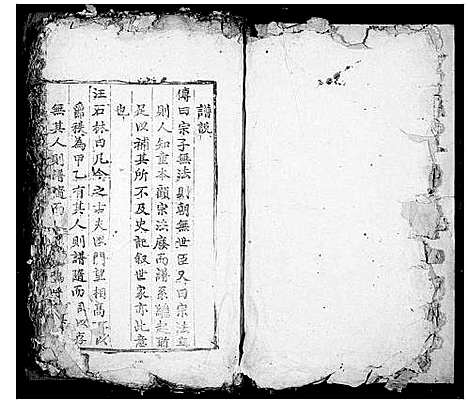 譜說
傳曰宗子無法則朝無世臣又曰宗法立
則人知重本顧宗法廢而譜系雖起
足以補其所不及史記叙世家亦此意
也
汪石林曰凡今之士大夫門望相高
為甲乙有其人則譜隨而存
無其人則譜隨而